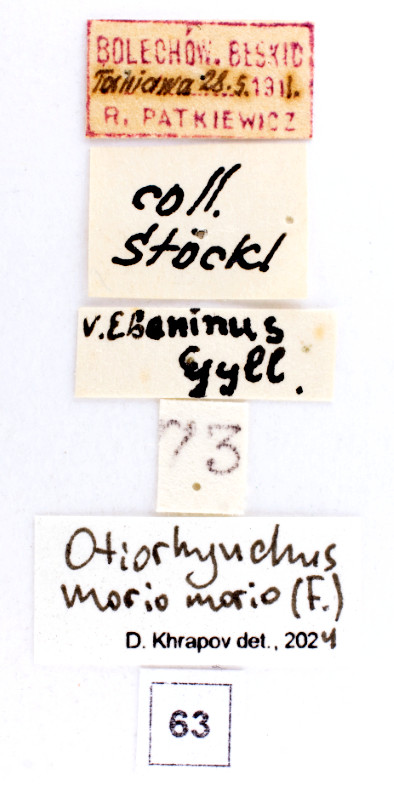 BOLECHÓW. BESKID
28.5.1911.
R. PATKIEWICZ
coll.
Stöckl
v. Ebeninus
Gyll.
73
Otiorhynchus
morio morio (F.)
D. Khrapov det., 2024
63